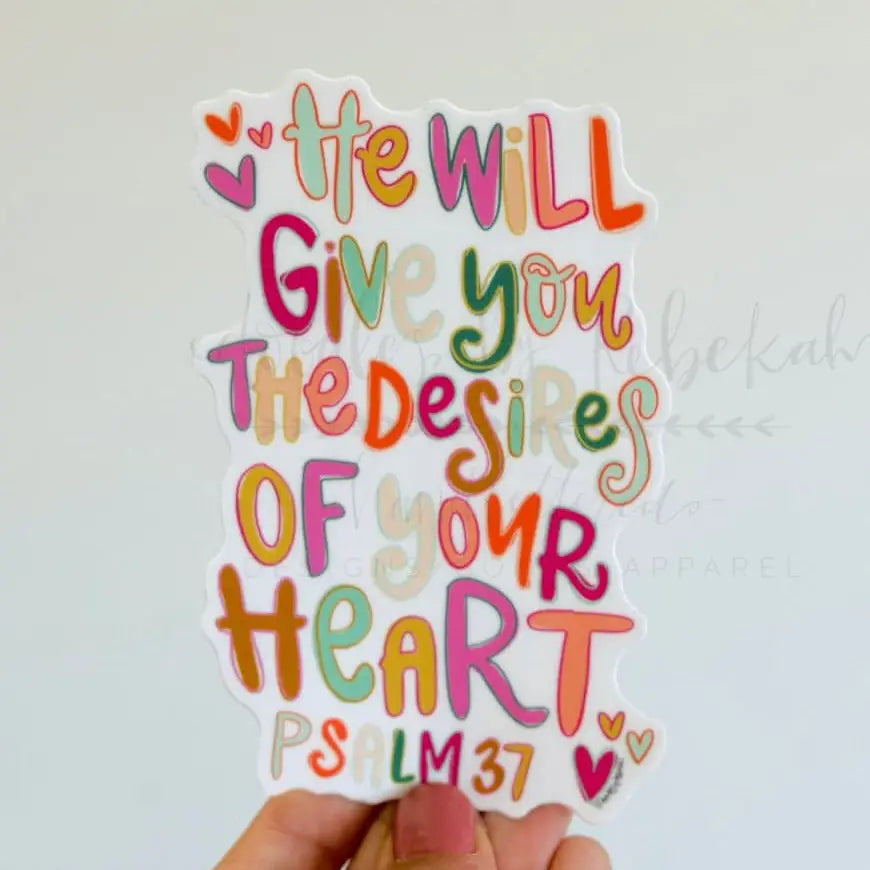 He WiLL
GiVe you
THe DeSiReS
OF yOUR
HeART
PSALM 37
Rebekah
DESIGNS
APPAREL